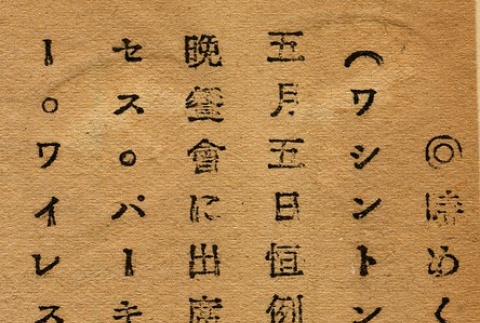 ◎時めく
(ワシントン
五月五日恒例
晩餐會に出席
セス。パーキ
ー。ワイレス